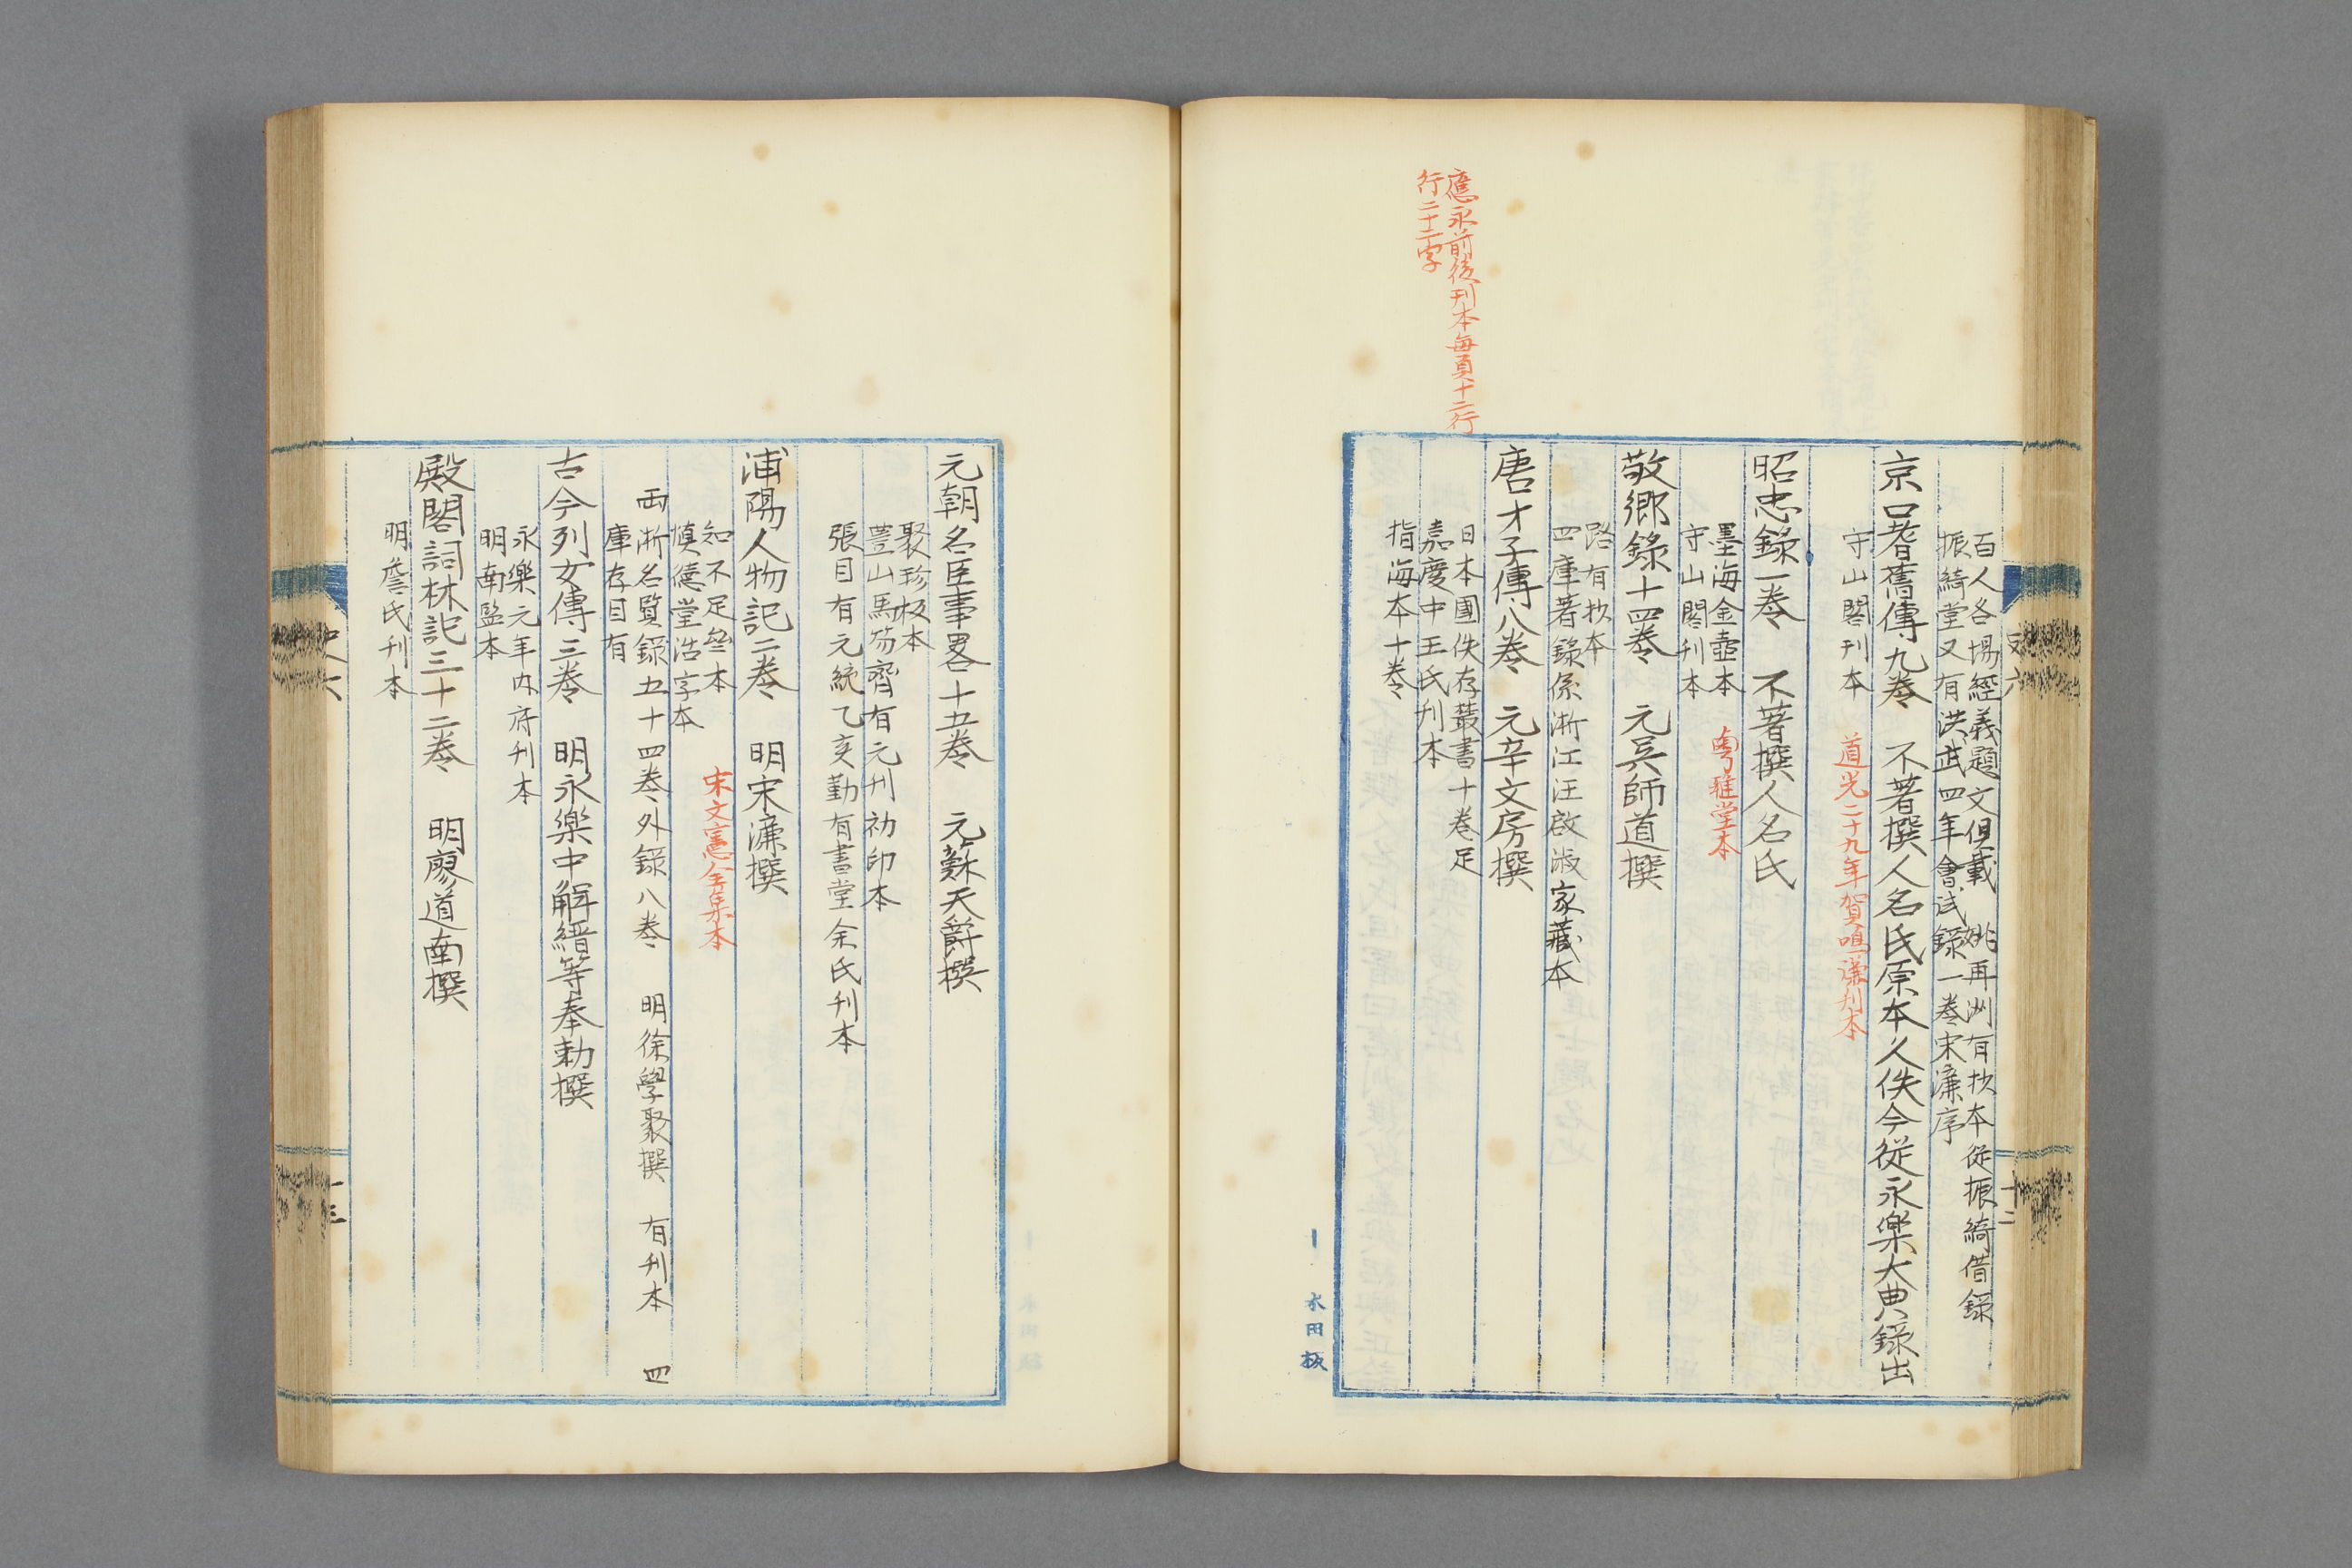 百人各場經義題文但載 姚再洲有抄本從振綺借錄
振綺堂又有洪武四年會試錄一卷宋濂序
京口耆舊傳九卷 不著撰人名氏原本久佚今從永樂大典錄出
守山閣刊本 道光二十九年賀鳴謙刊本
昭忠錄一卷 不著撰人名氏
墨海金壺本 粵雅堂本
守山閣刊本
敬鄉錄十四卷 元吳師道撰
路有抄本
四庫著錄係淅江汪啟淑家藏本
唐才子傳八卷 元辛文房撰
應永前後刊本每頁十二行
行二十二字
日本國佚存叢書十卷足
嘉慶中王氏刊本
指海本十卷
十二
永田板
元朝名臣事畧十五卷 元蘇天爵撰
聚珍板本
豐山馬笏齋有元刊初印本
張目有元統乙亥勤有書堂余氏刊本
浦陽人物記二卷 明宋濂撰
知不足叄本 宋文憲全集本
慎德堂活字本
兩淅名賢錄五十四卷外錄八卷 明徐學聚撰 有刊本 四
庫存目有
古今列女傳三卷 明永樂中解縉等奉勅撰
永樂元年內府刊本
明南監本
殿閣詞林記二十二卷 明廖道南撰
明詹氏刊本
史六
十三